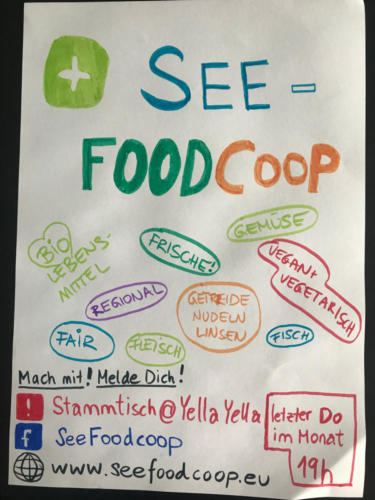 SEE-
FOODCOOP
GEMÜSE
BIO
LEBENS-
MITTEL
FRISCHE!
VEGAN+
VEGETARISCH
REGIONAL
GETREIDE
NUDELN
LINSEN
FAIR
FLEISCH
FISCH
Mach mit! Melde Dich!
! Stammtisch@Yella Yella
f SeeFoodcoop
www.seefoodcoop.eu
letzter Do
im Monat
19h